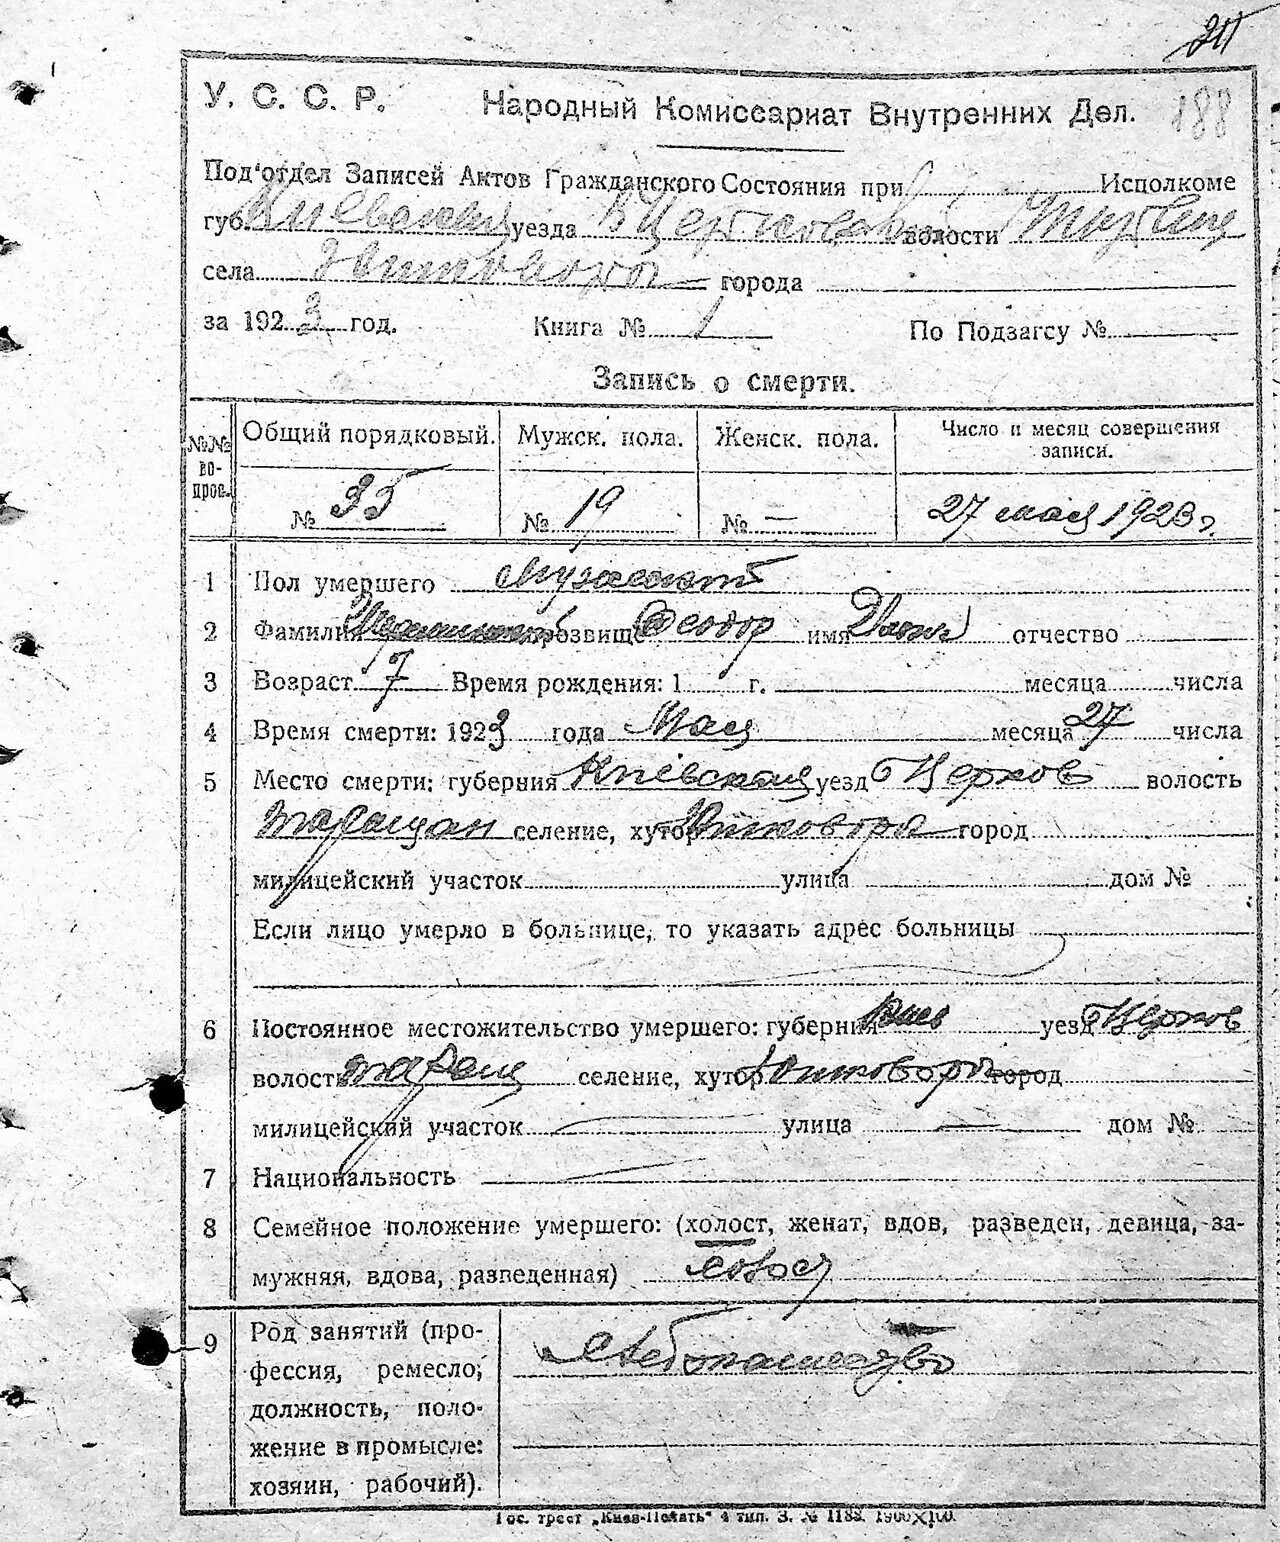 188
У. С. С. Р. Народный Комиссариат Внутренних Дел.
Под'отдел Записей Актов Гражданского Состояния при Исполкоме
губ. Киевской уезда Б Церковской волости
села города
за 1923 год. Книга № 1 По Подзагсу №
Запись о смерти.
№№ вопрос. Общий порядковый. Мужск. пола. Женск. пола. Число и месяц совершения записи.
№ 35 № 19 № — 27 мая 1923 г.
1 Пол умершего Мужеский
2 Фамилия прозвище Феодор имя отчество
3 Возраст 7 Время рождения: 1 г. месяца числа
4 Время смерти: 1923 года Мая месяца 27 числа
5 Место смерти: губерния Киевская уезд Б Церков волость
Таращан селение, хутор Юшков город
милицейский участок улица дом №
Если лицо умерло в больнице, то указать адрес больницы
6 Постоянное местожительство умершего: губерния Киев уезд Б Церков
волость Таращ селение, хутор город
милицейский участок улица — дом №
7 Национальность
8 Семейное положение умершего: (холост, женат, вдов, разведен, девица, за-
мужняя, вдова, разведенная)
9 Род занятий (про-
фессия, ремесло;
должность, поло-
жение в промысле:
хозяин, рабочий).
Хлебопашество
Гос. трест „Киев-Печать“ 4 тип. З. № 1188. 1900×100.